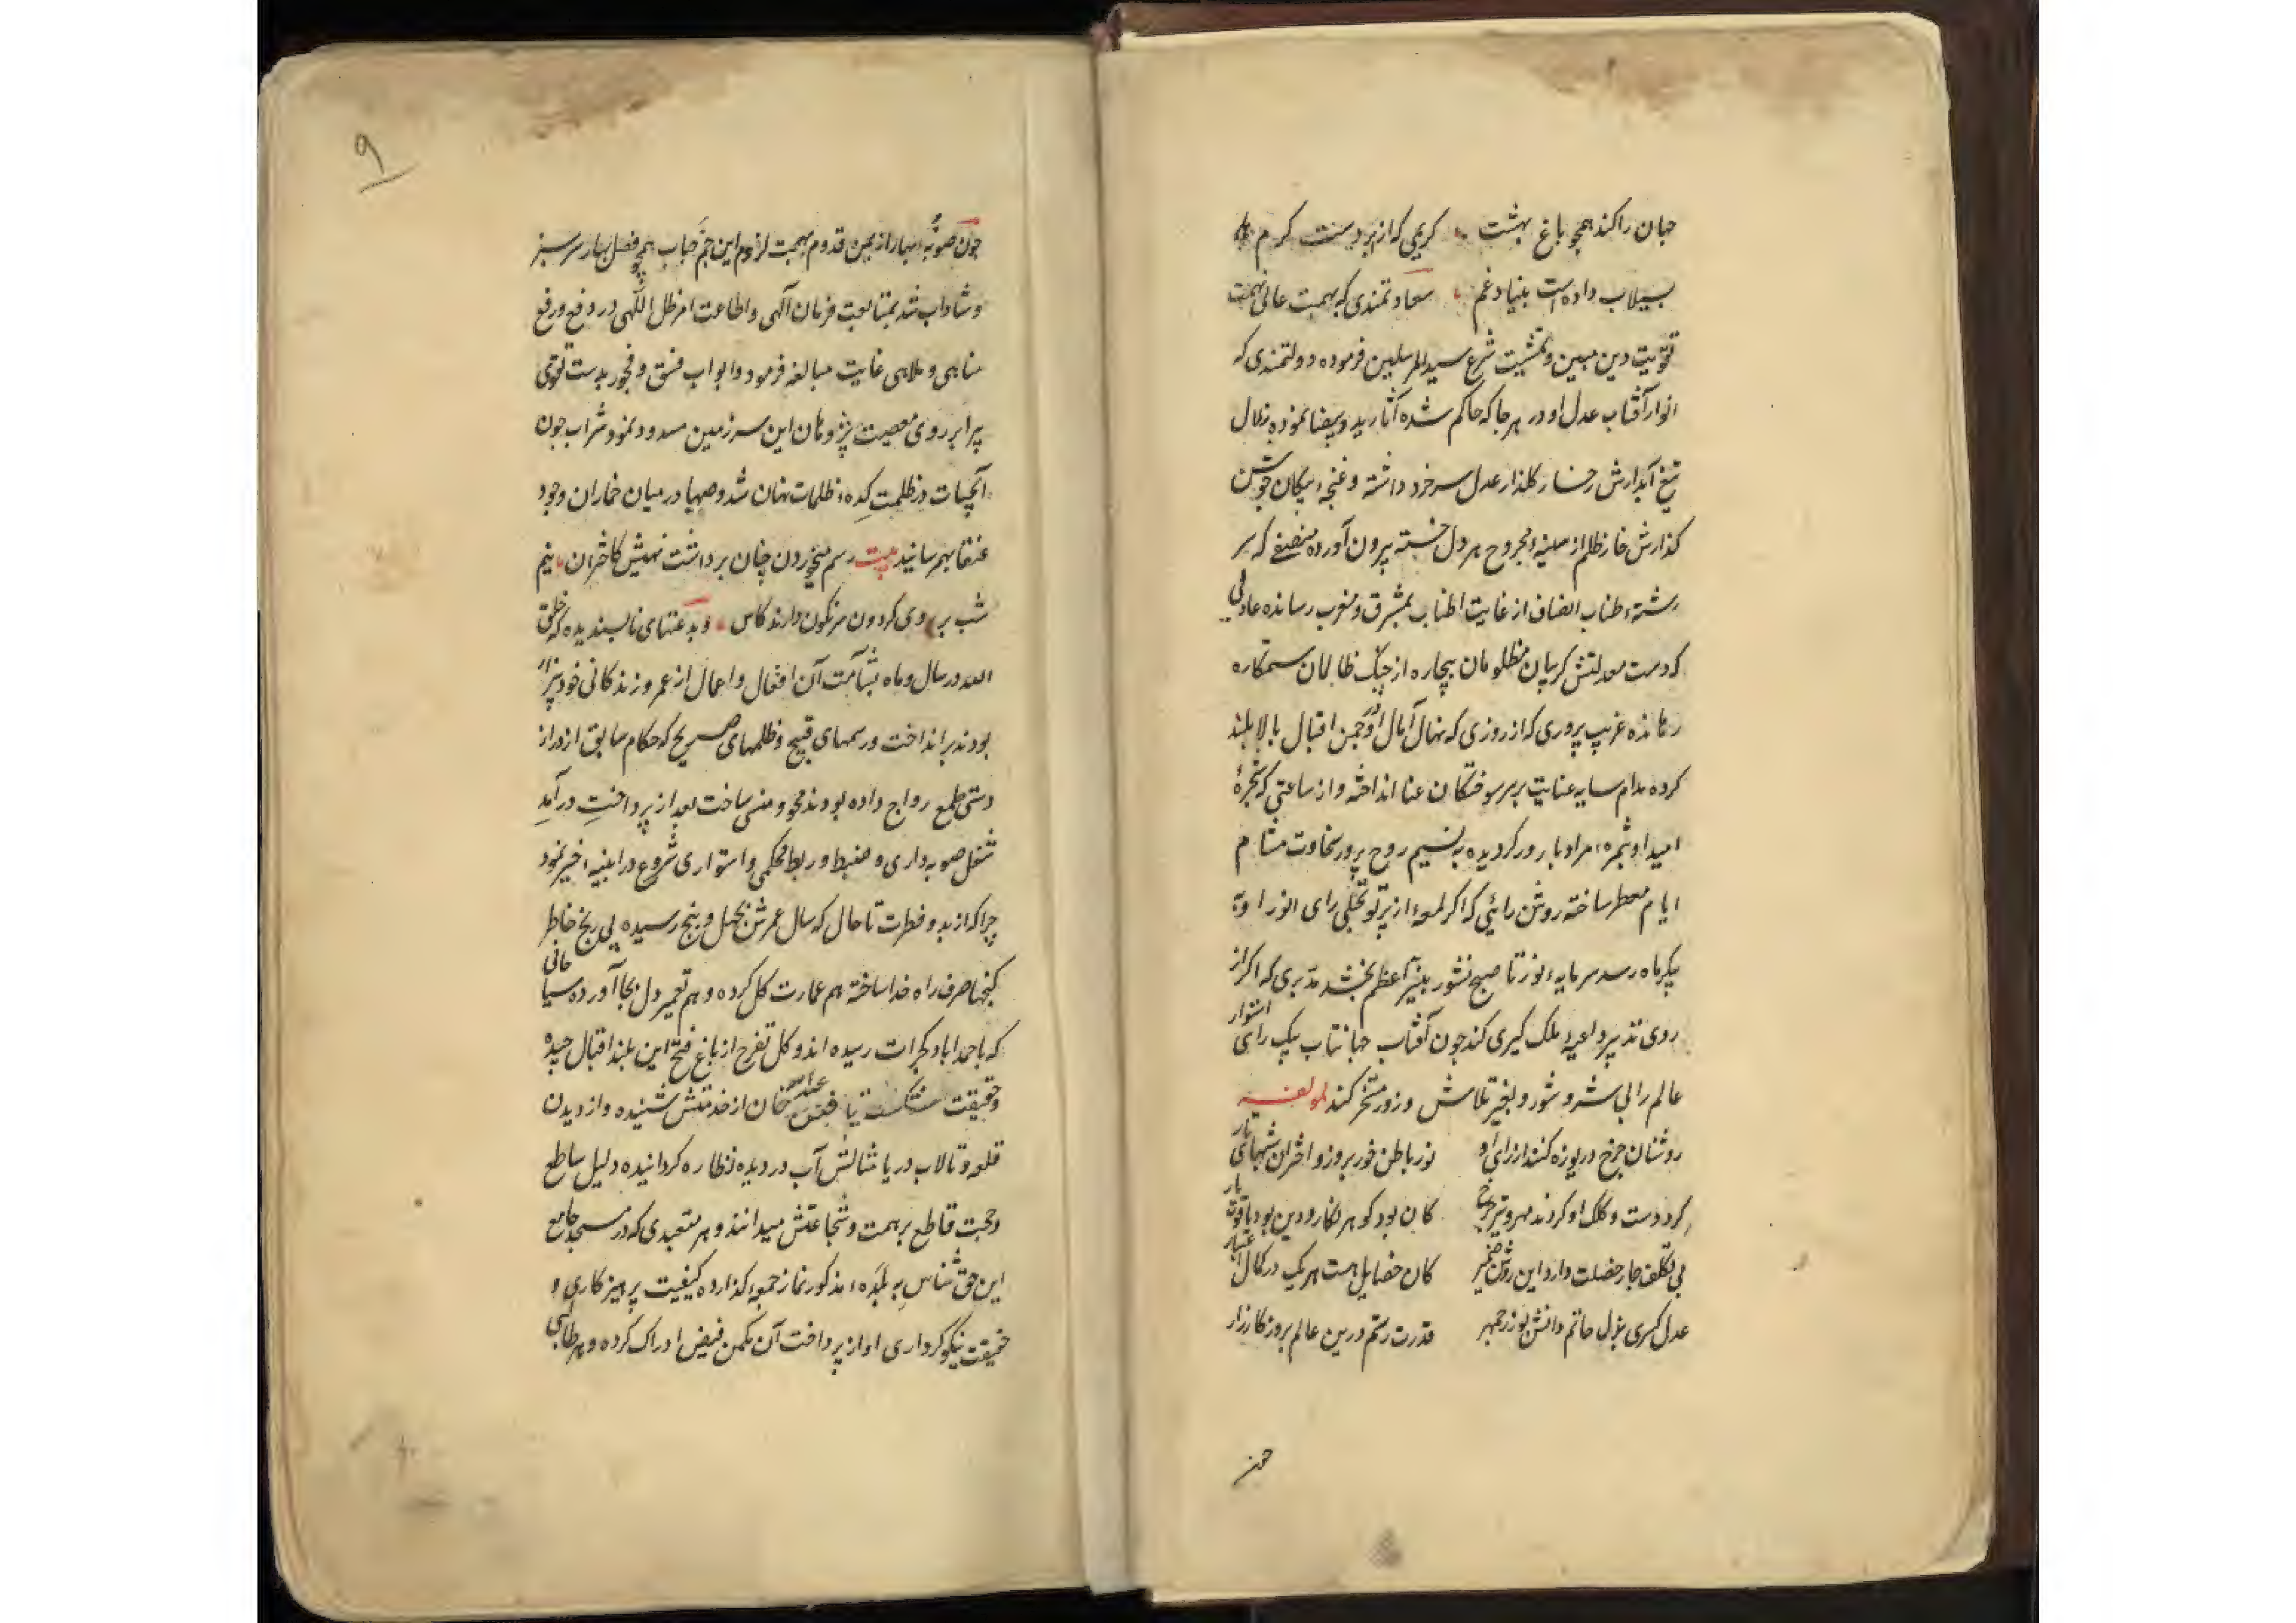 جهان را کند همچو باغ بهشت کریمی که از ابر دست کرم
بسیلاب داده است بنیاد غم سعادتمندی که بهمت عالی نهمت
تقویت دین مبین و تمشیت شرع سید المرسلین فرموده دولتمندی که
انوار آفتاب عدل او در هر جا که حاکم شده آثار ید و بیضا نموده زلال
تیغ آبدارش رخسار کلذار عدل سرخرو داشته و غنچهٔ پیکان جوشن
کذارش خار ظلم از سینهٔ مجروح هر دل خسته بیرون آورده منصفی که سر
رشتهٔ طناب انصاف از غایت اطناب بمشرق و مغرب رسانده عادلی
که دست معدلتش کریبان مظلومان بیچاره از چنک ظالمان ستمکاره
رهانده غریب پروری که از روزی که نهال آمال او در چمن اقبال بالا بلند
کرده مدام سایه عنایت بر سر سوختکان عنا انداخته و از ساعتی که شجرهٔ
امید او بثمرهٔ مراد بارور کردیده به نسیم روح پرور سخاوت مشام
ایام معطر ساخته روشن رائی که اکر لمعهٔ از پرتو تجلی رای انور او به
پیکر ماه رسد سرمایهٔ نور تا صبح نشور بنیر اعظم بخشد مدبری که اکر از
روی تدبیر داعیه ملک کیری کند چون آفتاب جهانتاب بیک رای استوار
عالم را بی شر و شور و بغیر تلاش و زور مسخر کند لمولفه
روشنان چرخ دریوزه کنند از رای او نور باطن خور بروز و اختران شبهای تار
کرد دست و کلک او کردند مهر و تیر چرخ کان بود کوهر نکار و دین بود یاقوت بار
بی تکلف چار خصلت دارد این روشن ضمیر کان خصایل هست هر یک در کمال اعتبار
عدل کسری بذل حاتم دانش بوزرجمهر قدرت رستم درین عالم بروز کارزار
۹
چون صوبهٔ بهار از یمن قدوم بهجت لزوم این جم جناب همچو فصل بهار سرسبز
و شاداب شد بمتابعت فرمان آلهی و اطاعت امر ظل اللهی در دفع و رفع
مناهی و ملاهی غایت مبالغه فرمود و ابواب فسق و فجور بدست تقوی
پرا بر روی معصیت پژوهان این سرزمین مسدود نمود شراب چون
آبحیات در ظلمت کدهٔ ظلمات نهان شد و صهبا در میان خماران وجود
عنقا بهم رسانید بیت رسم میخوردن چنان برداشت نهیش کاختران نیم
شب بر روی کردون سرنکون دارند کاس و بدعتهای ناپسندیده که خلق
الله در سال و ماه بشآمت آن افعال و اعمال از عمر و زندکانی خود بیزار
بودند برانداخت و رسمهای قبیح و ظلمهای صریح که حکام سابق از دراز
دستی طمع رواج داده بودند محو و منسی ساخت بعد از پرداخت درآمد
شغل صوبه داری و ضبط و ربط محکمی و استواری شروع در ابنیه اخیر نمود
چرا که از بدو فطرت تا حال که سال عمرش بچهل و پنج رسیده بی رنج خاطر
کنجها صرف راه خدا ساخته هم عمارت کل کرده و هم تعمیر دل بجا آورده سیاحانی
که باحمداباد کجرات رسیده اند و کل تفرج از باغ فتح این بلند اقبال چیده
و حقیقت شکست یافتن عبدالله خان از خدمتش شنیده و از دیدن
قلعه و تالاب دریا مثالش آب در دیده نظاره کردانیده دلیل ساطع
و حجت قاطع بر همت و شجاعتش میدانند و هر متعبدی که در مسجد جامع
این حق شناس به بلدهٔ مذکور نماز جمعه کذارده کیفیت پرهیزکاری و
حقیقت نیکوکرداری او از پرداخت آن مکمن فیض ادراک کرده و هر طالبی